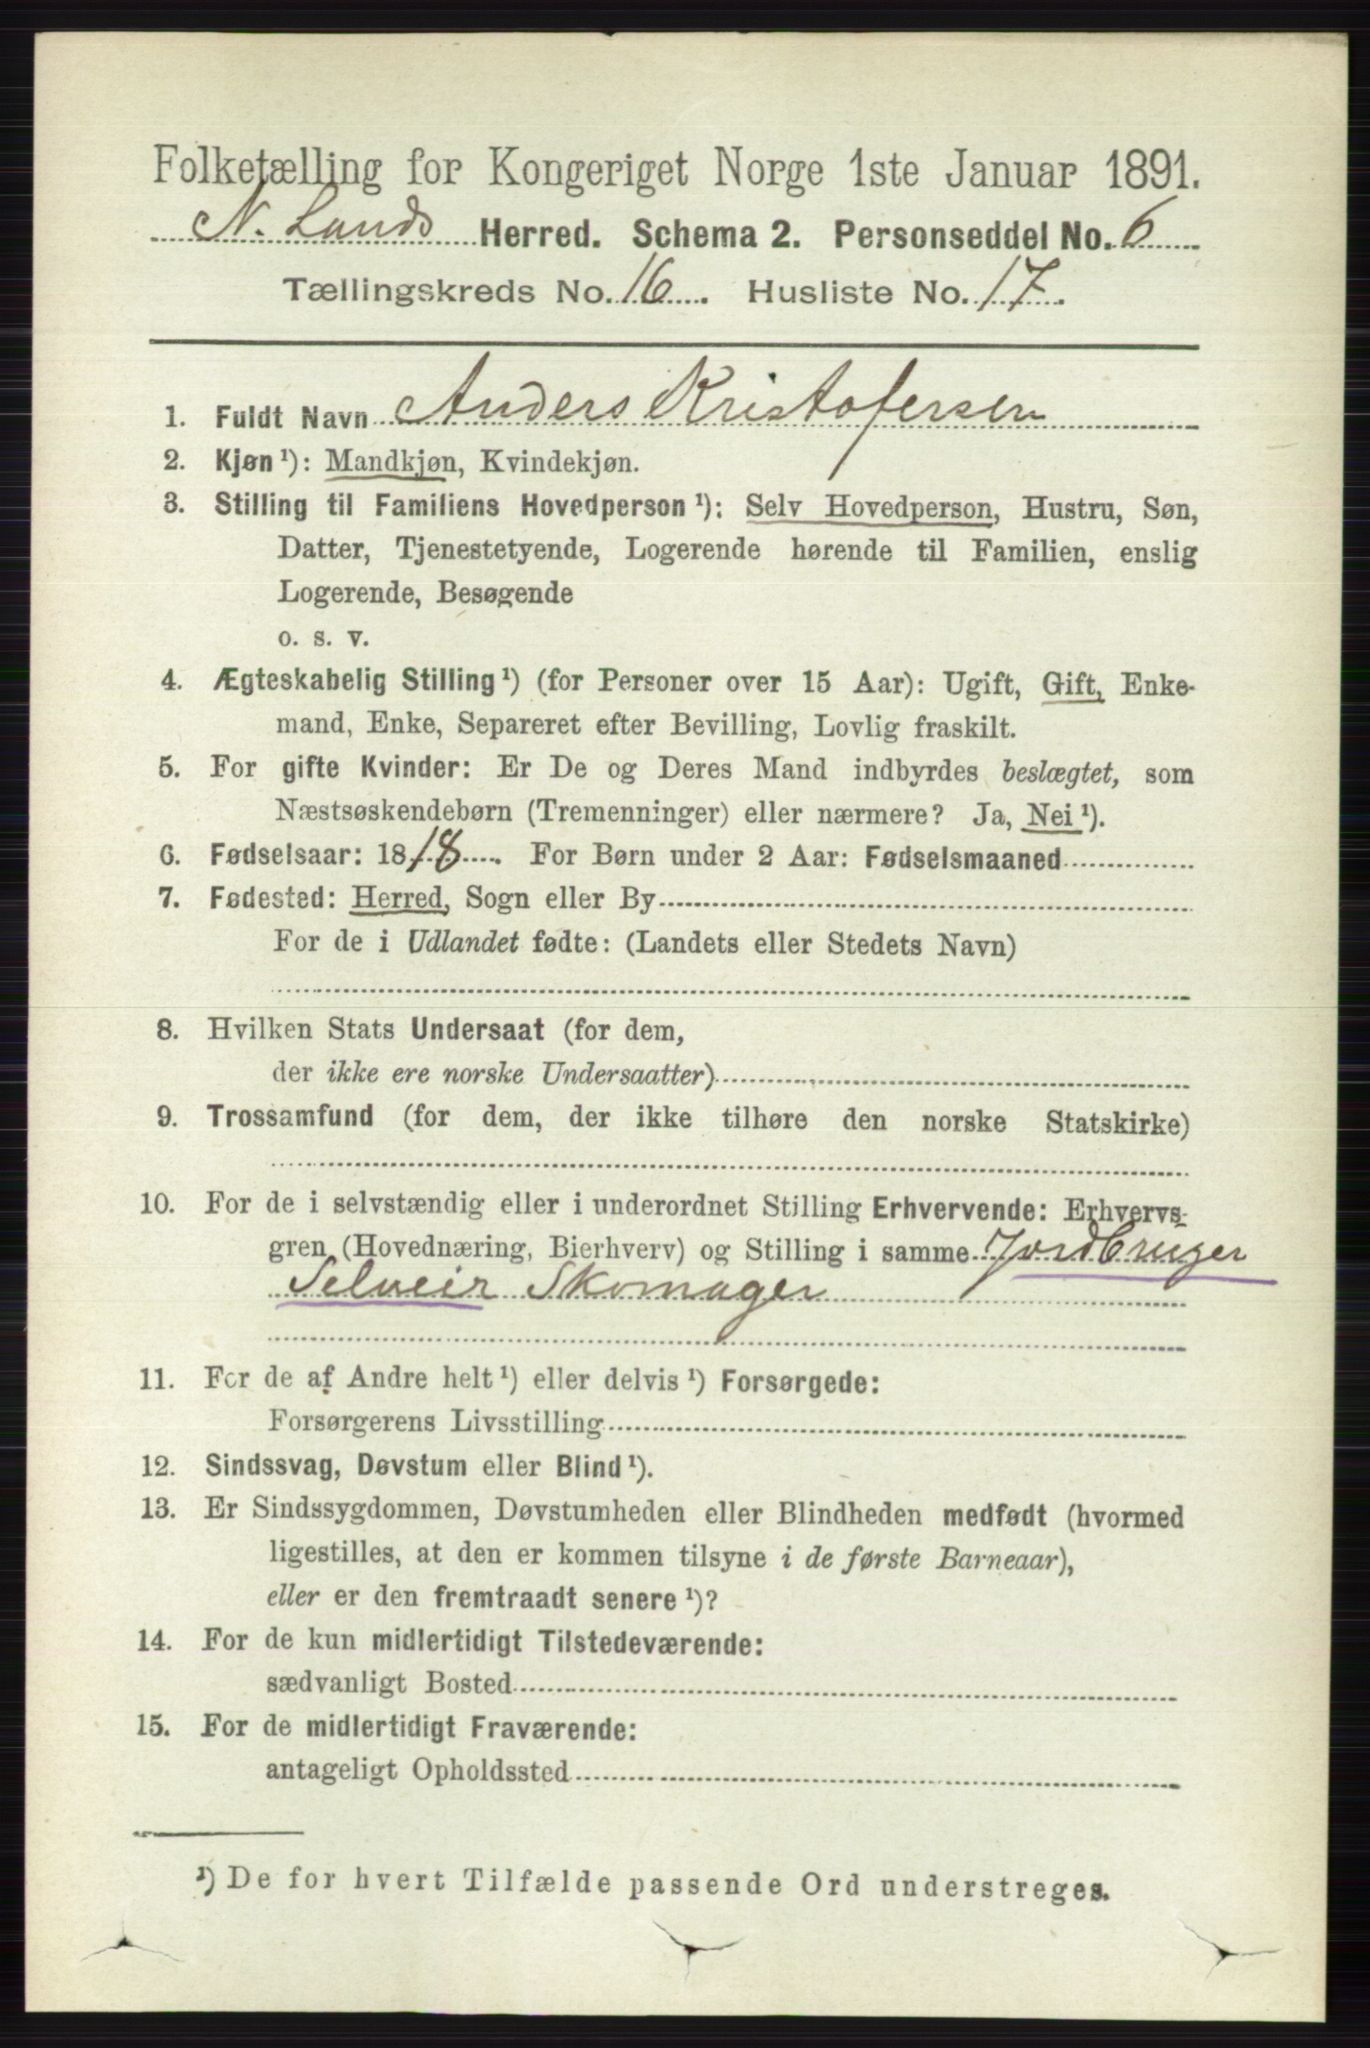 Folketælling for Kongeriget Norge 1ste Januar 1891.
N. Lands Herred. Schema 2. Personseddel No. 6
Tællingskreds No. 16. Husliste No. 17.
1. Fuldt Navn Anders Kristofersen
2. Kjøn ¹): Mandkjøn, Kvindekjøn.
3. Stilling til Familiens Hovedperson ¹): Selv Hovedperson, Hustru, Søn,
Datter, Tjenestetyende, Logerende hørende til Familien, enslig
Logerende, Besøgende
o. s. v.
4. Ægteskabelig Stilling ¹) (for Personer over 15 Aar): Ugift, Gift, Enke-
mand, Enke, Separeret efter Bevilling, Lovlig fraskilt.
5. For gifte Kvinder: Er De og Deres Mand indbyrdes beslægtet, som
Næstsøskendebørn (Tremenninger) eller nærmere? Ja, Nei ¹).
6. Fødselsaar: 1818. For Børn under 2 Aar: Fødselsmaaned
7. Fødested: Herred, Sogn eller By
For de i Udlandet fødte: (Landets eller Stedets Navn)
8. Hvilken Stats Undersaat (for dem,
der ikke ere norske Undersaatter)
9. Trossamfund (for dem, der ikke tilhøre den norske Statskirke)
10. For de i selvstændig eller i underordnet Stilling Erhvervende: Erhvervs-
gren (Hovednæring, Bierhverv) og Stilling i samme Jordbruger
Selveier Skomager
11. For de af Andre helt ¹) eller delvis ¹) Forsørgede:
Forsørgerens Livsstilling
12. Sindssvag, Døvstum eller Blind ¹).
13. Er Sindssygdommen, Døvstumheden eller Blindheden medfødt (hvormed
ligestilles, at den er kommen tilsyne i de første Barneaar),
eller er den fremtraadt senere ¹)?
14. For de kun midlertidigt Tilstedeværende:
sædvanligt Bosted
15. For de midlertidigt Fraværende:
antageligt Opholdssted
¹) De for hvert Tilfælde passende Ord understreges.